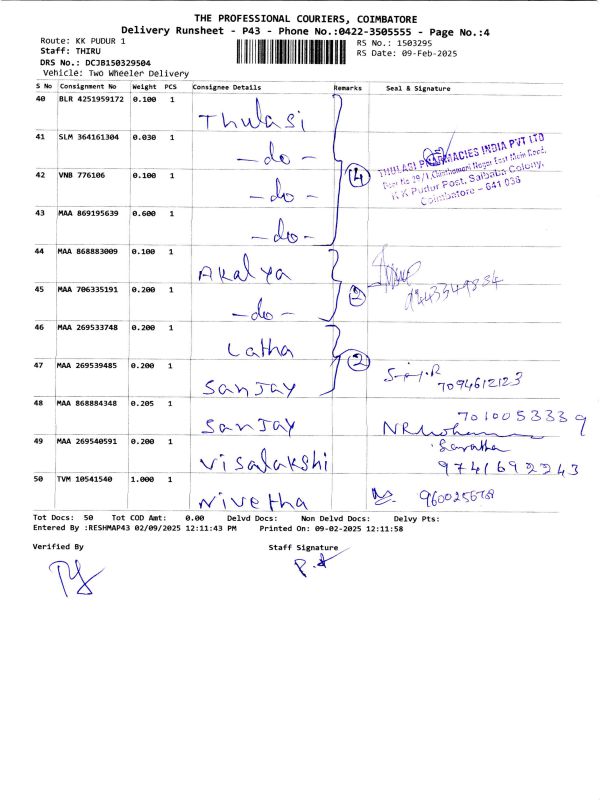 THE PROFESSIONAL COURIERS, COIMBATORE
Delivery Runsheet - P43 - Phone No.:0422-3505555 - Page No.:4
Route: KK PUDUR 1
RS No.: 1503295
Staff: THIRU
RS Date: 09-Feb-2025
DRS No.: DCJB150329504
Vehicle: Two Wheeler Delivery
S No Consignment No Weight PCS Consignee Details Remarks Seal & Signature
40 BLR 4251959172 0.100 1 Thulasi
41 SLM 364161304 0.030 1 -do-
42 VNB 776106 0.100 1 -do- 4
THULASI PHARMACIES INDIA PVT LTD
Door No 29/1, Chinthamani Nagar East Main Road,
K K Pudur Post, Saibaba Colony,
Coimbatore - 641 038
43 MAA 869195639 0.600 1 -do-
44 MAA 868883009 0.100 1 Akalya
45 MAA 706335191 0.200 1 -do- 2
46 MAA 269533748 0.200 1 Latha
47 MAA 269539485 0.200 1 Sanjay 2 7094612123
48 MAA 868884348 0.205 1 Sanjay 7010053339
49 MAA 269540591 0.200 1 Visalakshi 9741692243
50 TVM 10541540 1.000 1 Nivetha
Tot Docs: 50 Tot COD Amt: 0.00 Delvd Docs: Non Delvd Docs: Delvy Pts:
Entered By :RESHMAP43 02/09/2025 12:11:43 PM Printed On: 09-02-2025 12:11:58
Verified By Staff Signature